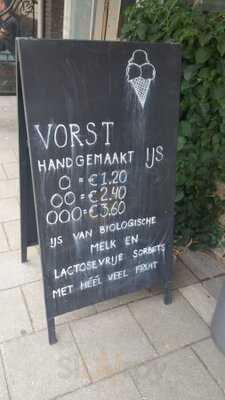 VORST
HANDGEMAAKT IJS
O = €1.20
OO = €2.40
OOO = €3.60
IJS VAN BIOLOGISCHE
MELK EN
LACTOSEVRIJE SORBETS
MET HÉÉL VEEL FRUIT